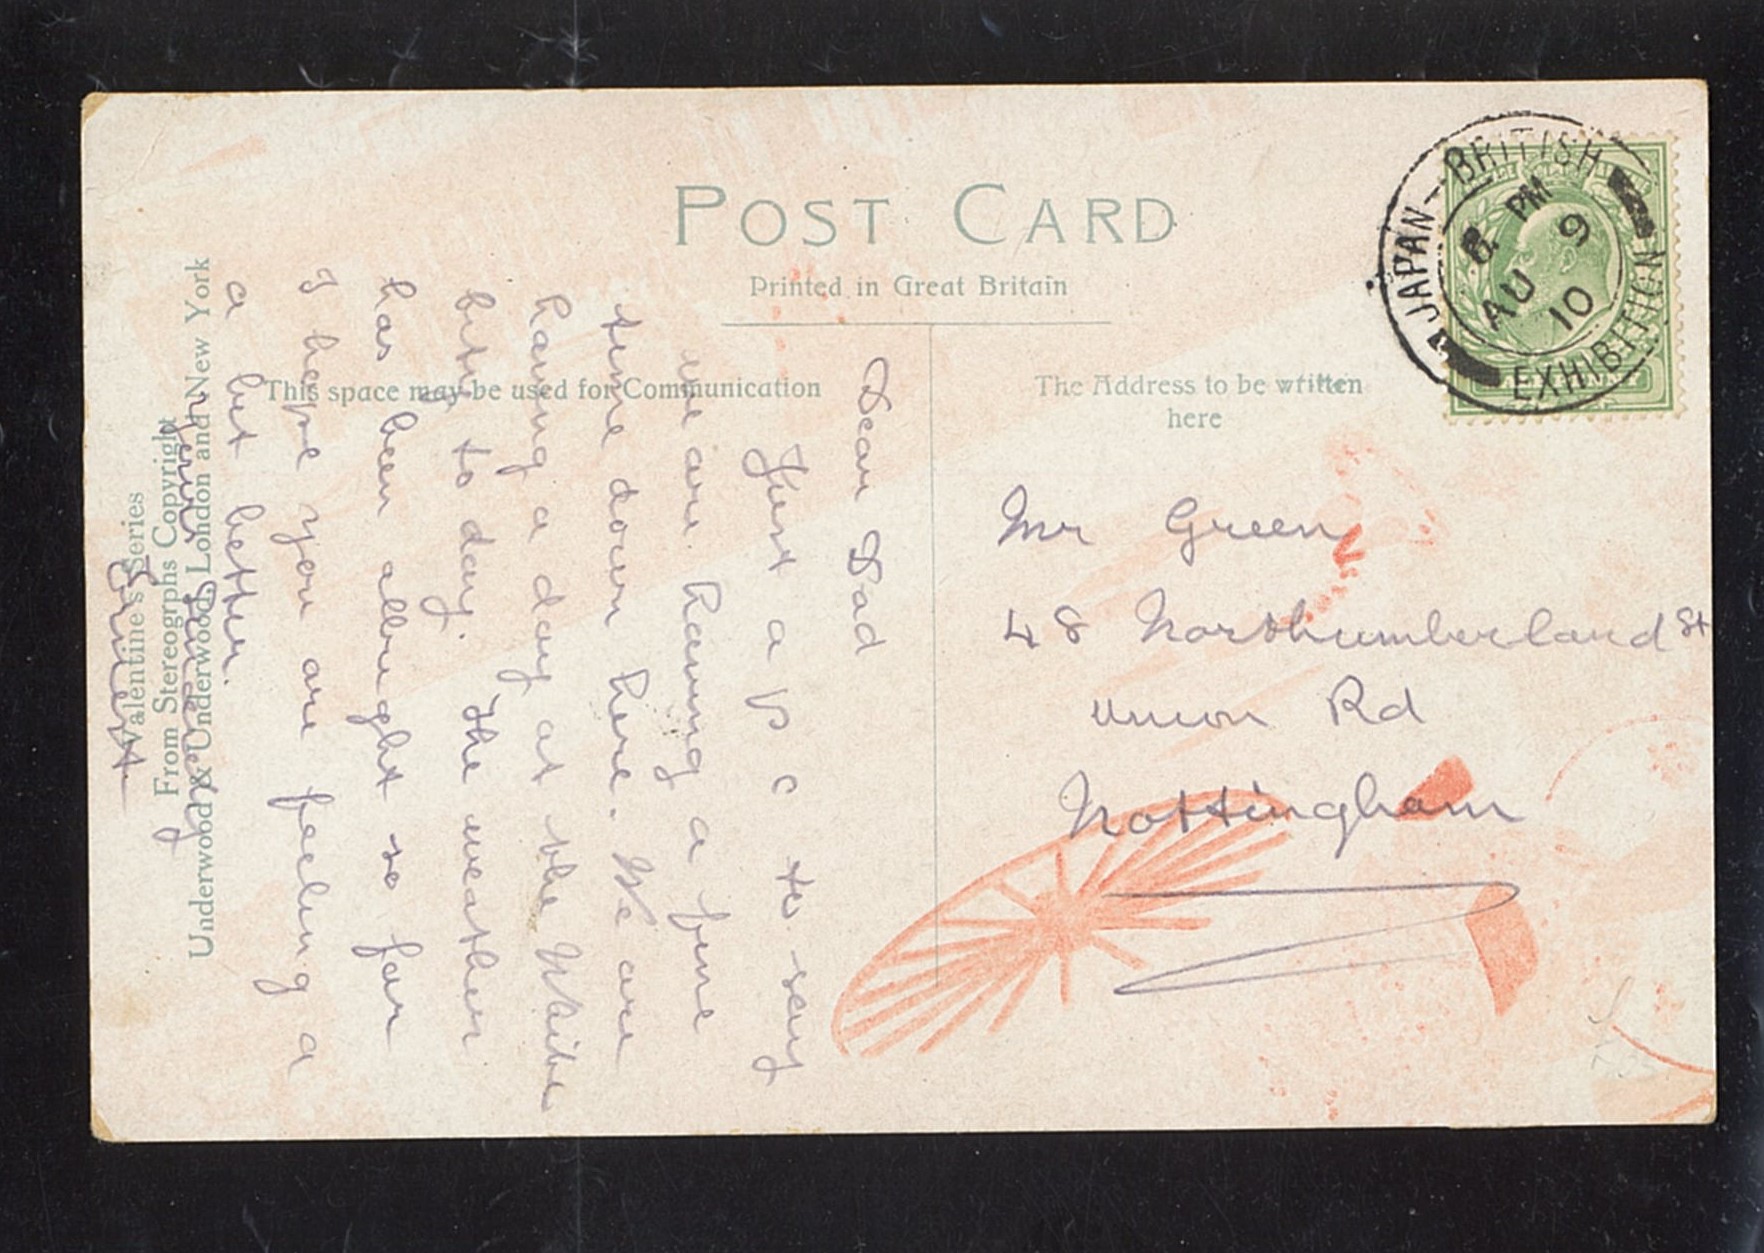 POST CARD
Printed in Great Britain
This space may be used for Communication
The Address to be written
here
JAPAN-BRITISH
EXHIBITION
8 PM
AU 9
10
Dear Dad
Just a p c to say
we are having a fine
time down here. We are
having a day at the White
City to day. The weather
has been allright so far
I hope you are feeling a
a bit better.
Your
Ernest
Mr Green
48 Northumberland St
Union Rd
Nottingham
Valentine's Series
From Stereogrphs Copyright
Underwood & Underwood, London and New York